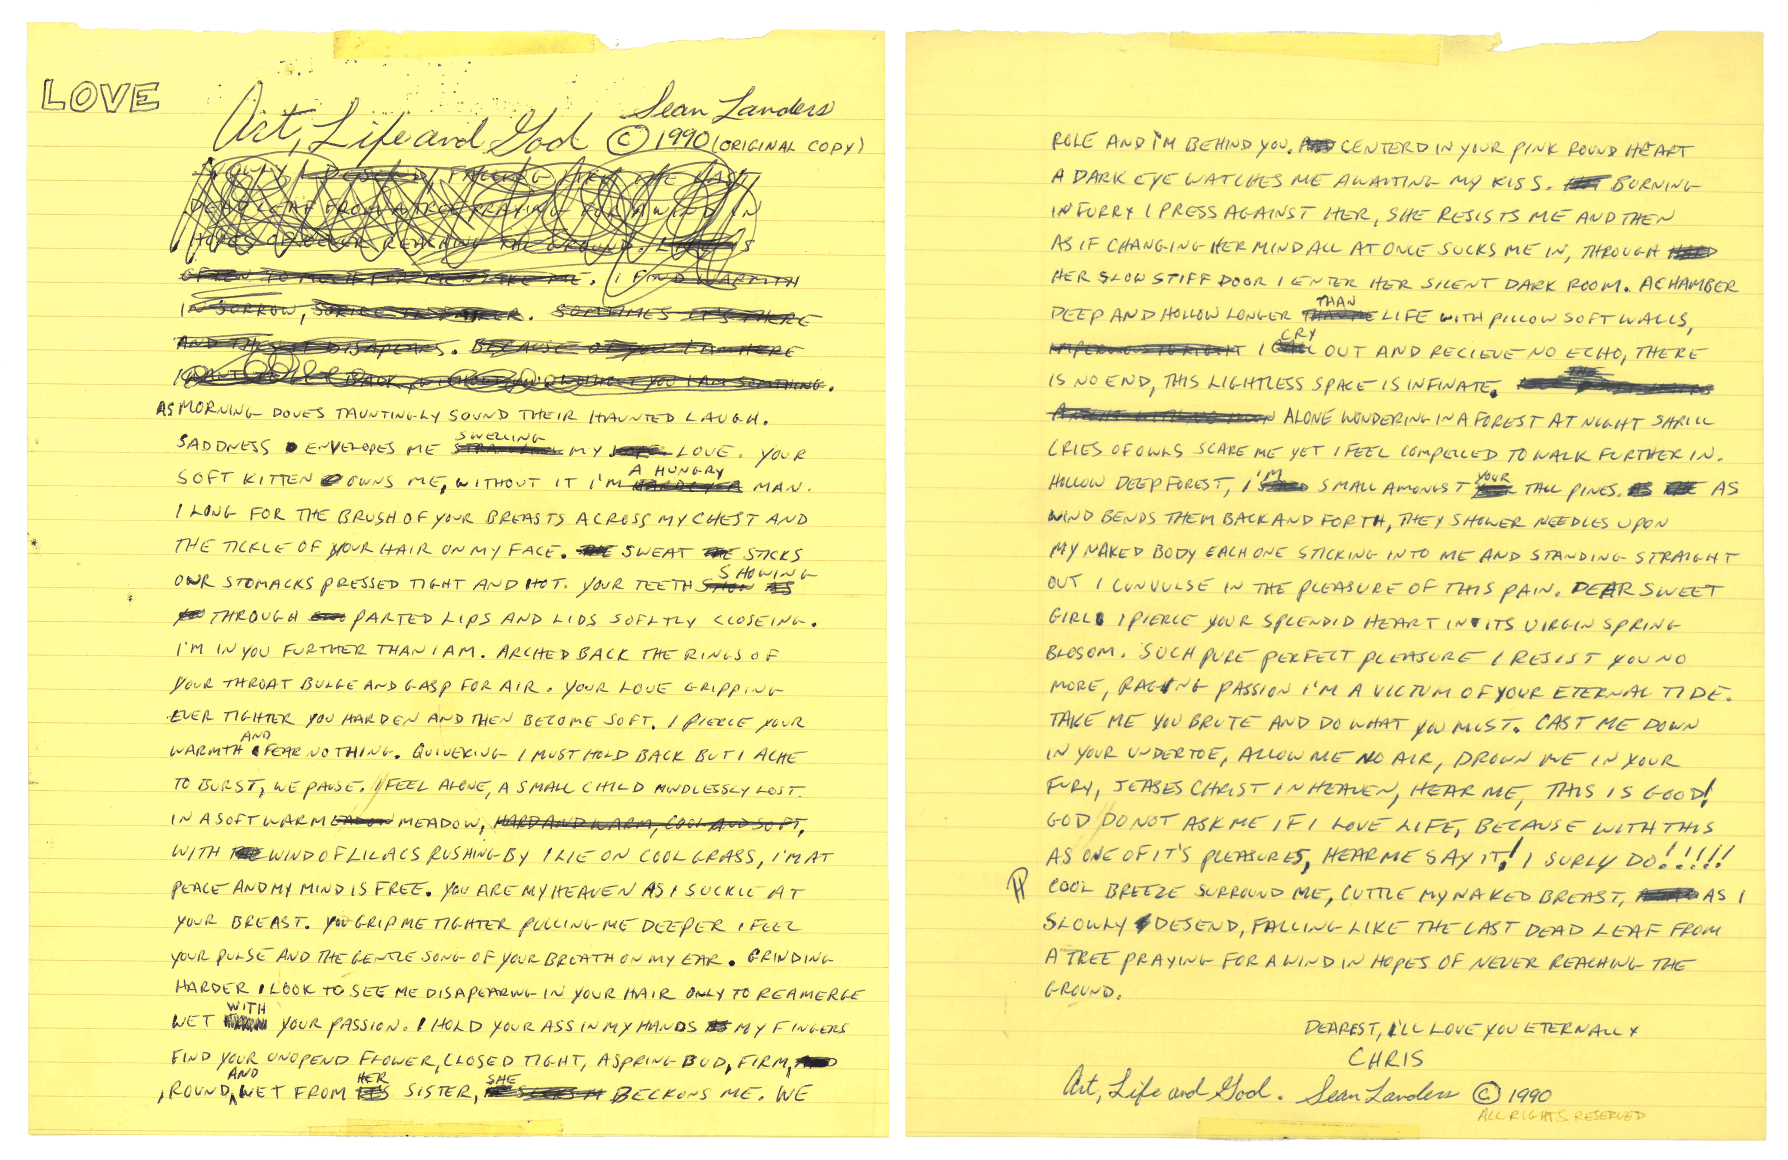 LOVE
Art, Life and God Sean Landers
© 1990 (ORIGINAL COPY)
FALLING LIKE THE LAST
DEAD LEAF FROM A TREE PRAYING FOR A WIND IN
HOPES OF NEVER REACHING THE GROUND. IS
OFTEN TO MUCH FOR ME TO TAKE ME. I FIND WARMTH
IN SORROW, . SOMTIMES IT'S THERE
AND THEN IT DISAPEARS. BECAUSE OF YOU I AM HERE
I WANT BACK, WITHOUT YOU I AM SOMTHING.
AS MORNING DOVES TAUNTINGLY SOUND THEIR HAUNTED LAUGH.
SADDNESS ENVELOPES ME SWELLING MY LOVE. YOUR
SOFT KITTEN OWNS ME, WITHOUT IT I'M A HUNGRY MAN.
I LONG FOR THE BRUSH OF YOUR BREASTS ACROSS MY CHEST AND
THE TICKLE OF YOUR HAIR ON MY FACE. SWEAT STICKS
OUR STOMACKS PRESSED TIGHT AND HOT. YOUR TEETH SHOWING
THROUGH PARTED LIPS AND LIDS SOFLTLY CLOSEING.
I'M IN YOU FURTHER THAN I AM. ARCHED BACK THE RINGS OF
YOUR THROAT BULGE AND GASP FOR AIR. YOUR LOVE GRIPPING
EVER TIGHTER YOU HARDEN AND THEN BECOME SOFT. I PIERCE YOUR
WARMTH AND FEAR NOTHING. QUIVERING I MUST HOLD BACK BUT I ACHE
TO BURST, WE PAUSE. I FEEL ALONE, A SMALL CHILD MINDLESSLY LOST
IN A SOFT WARM MEADOW, HARD AND WARM, COOL AND SOFT,
WITH WIND OF LILACS RUSHING BY I LIE ON COOL GRASS, I'M AT
PEACE AND MY MIND IS FREE. YOU ARE MY HEAVEN AS I SUCKLE AT
YOUR BREAST. YOU GRIP ME TIGHTER PULLING ME DEEPER I FEEL
YOUR PULSE AND THE GENTLE SONG OF YOUR BREATH ON MY EAR. GRINDING
HARDER I LOOK TO SEE ME DISAPEARING IN YOUR HAIR ONLY TO REAMERGE
WET WITH YOUR PASSION. I HOLD YOUR ASS IN MY HANDS MY FINGERS
FIND YOUR UNOPEND FLOWER, CLOSED TIGHT, A SPRING BUD, FIRM,
, ROUND, AND WET FROM HER SISTER, SHE BECKONS ME. WE
ROLE AND I'M BEHIND YOU. CENTERD IN YOUR PINK ROUND HEART
A DARK EYE WATCHES ME AWAITING MY KISS. BURNING
IN FURRY I PRESS AGAINST HER, SHE RESISTS ME AND THEN
AS IF CHANGING HER MIND ALL AT ONCE SUCKS ME IN, THROUGH
HER SLOW STIFF DOOR I ENTER HER SILENT DARK ROOM. A CHAMBER
DEEP AND HOLLOW LONGER THAN LIFE WITH PILLOW SOFT WALLS,
I CRY OUT AND RECIEVE NO ECHO, THERE
IS NO END, THIS LIGHTLESS SPACE IS INFINATE.
ALONE WONDERING IN A FOREST AT NIGHT SHRILL
CRIES OF OWLS SCARE ME YET I FEEL COMPELLED TO WALK FURTHER IN.
HOLLOW DEEP FOREST, I'M SMALL AMONGST YOUR TALL PINES. AS
WIND BENDS THEM BACK AND FORTH, THEY SHOWER NEEDLES UPON
MY NAKED BODY EACH ONE STICKING INTO ME AND STANDING STRAIGHT
OUT I CONVULSE IN THE PLEASURE OF THIS PAIN. DEAR SWEET
GIRL I PIERCE YOUR SPLENDID HEART IN ITS VIRGIN SPRING
BLOSOM. SUCH PURE PERFECT PLEASURE I RESIST YOU NO
MORE, RAGING PASSION I'M A VICTUM OF YOUR ETERNAL TIDE.
TAKE ME YOU BRUTE AND DO WHAT YOU MUST. CAST ME DOWN
IN YOUR UNDERTOE, ALLOW ME NO AIR, DROWN ME IN YOUR
FURY, JEASES CHRIST IN HEAVEN, HEAR ME, THIS IS GOOD!
GOD DO NOT ASK ME IF I LOVE LIFE, BECAUSE WITH THIS
AS ONE OF IT'S PLEASURES, HEAR ME SAY IT! I SURLY DO!!!!!!
COOL BREEZE SURROUND ME, CUTTLE MY NAKED BREAST, AS I
SLOWLY DESEND, FALLING LIKE THE LAST DEAD LEAF FROM
A TREE PRAYING FOR A WIND IN HOPES OF NEVER REACHING THE
GROUND.
DEAREST, I'LL LOVE YOU ETERNALLY
CHRIS
Art, Life and God. Sean Landers © 1990
ALL RIGHTS RESERVED